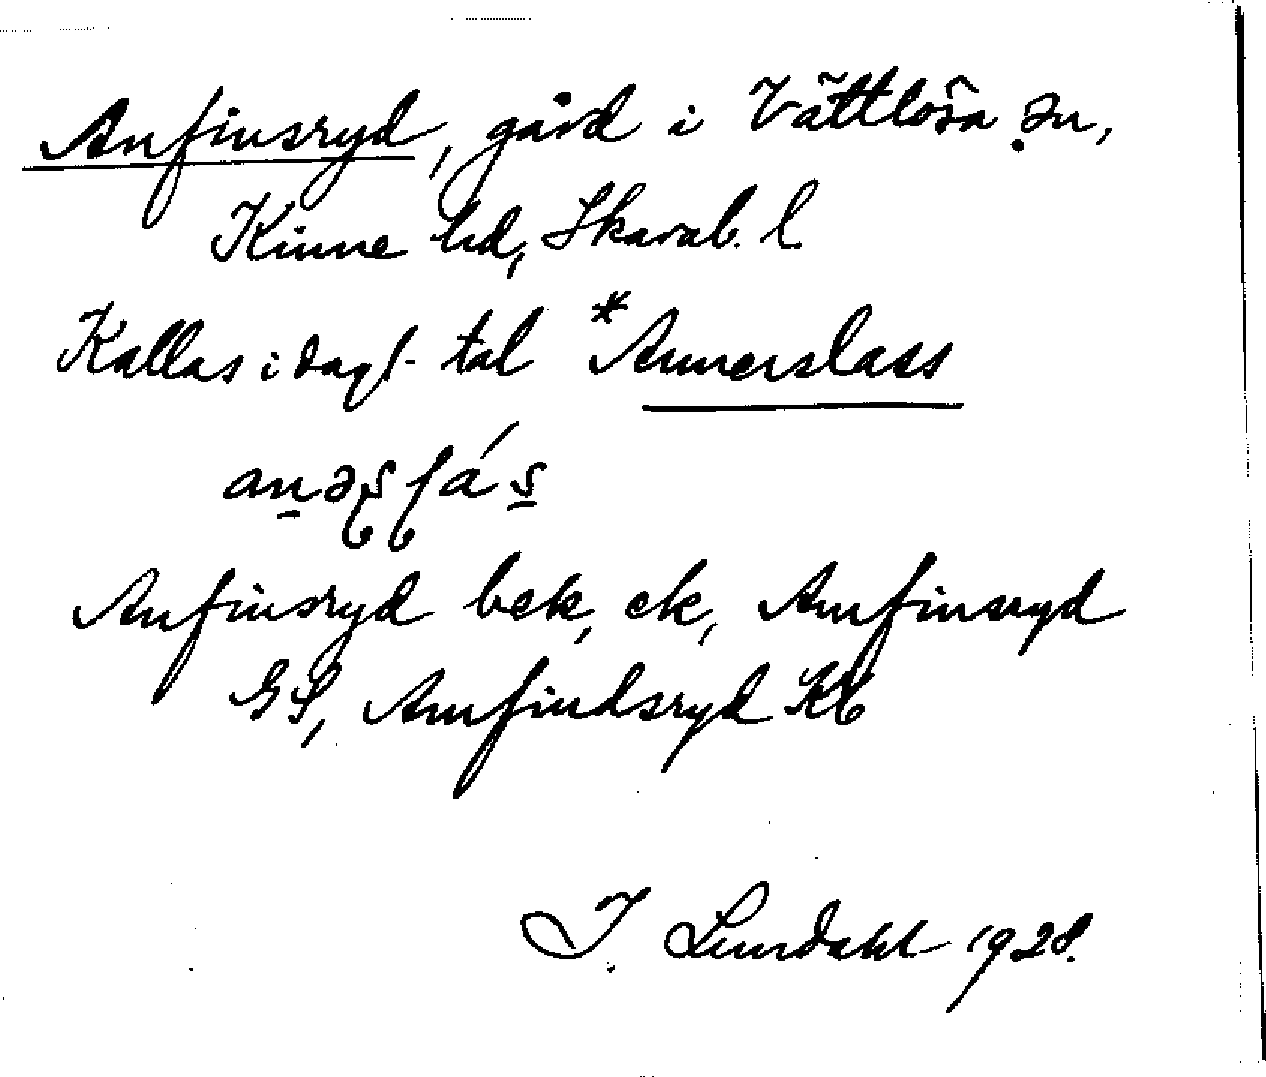 Anfinsryd, gård i Vättlösa sn,
Kinne hd, Skarab. l
Kallas i dagl. tal *Annerslass
Anfinsryd bek, ek, Amfinsryd
GS, Amfindsryd KB
I. Lundahl 1928.